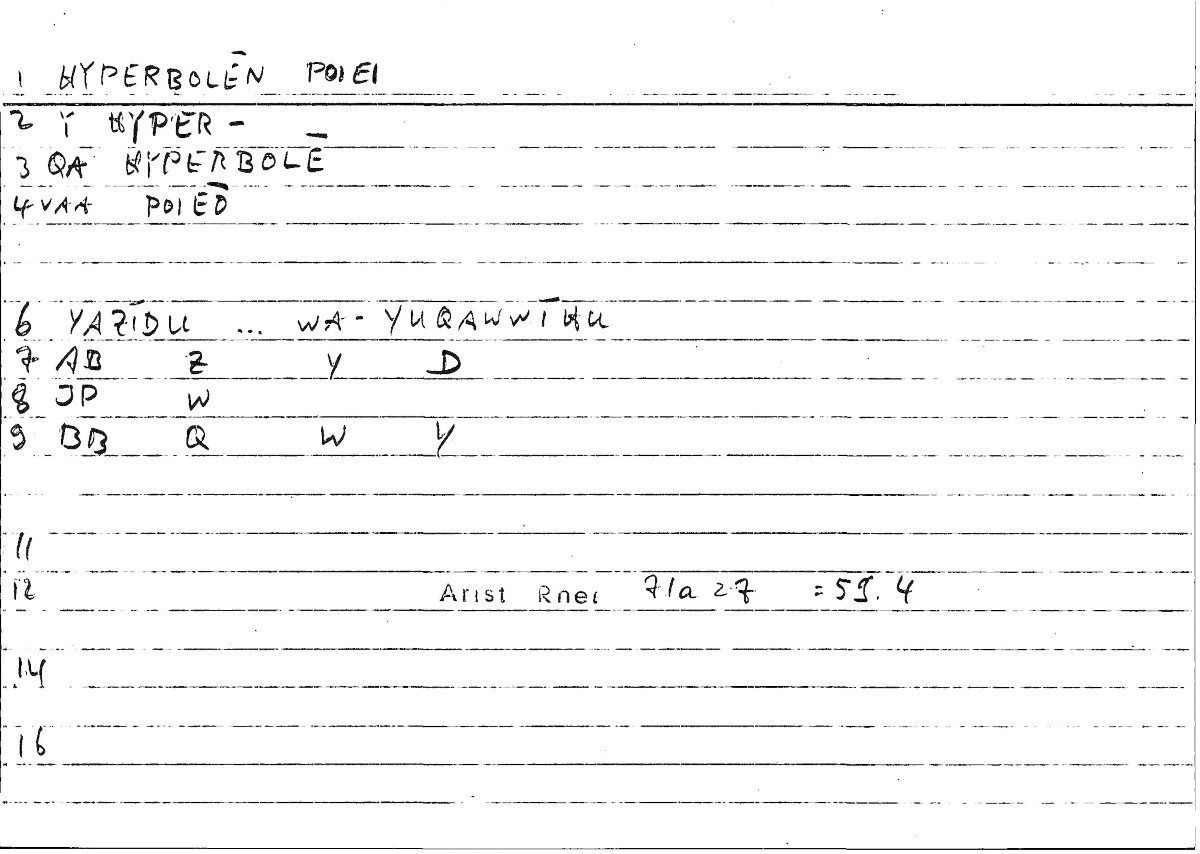 1 HYPERBOLĒN POIEI
2 Y HYPER -
3 QA HYPERBOLĒ
4 VAA POIEŌ
6 YAZĪDU ... WA - YUQAWWĪHU
7 AB Z Y D
8 JP W
9 BB Q W Y
11
12 Arist Rhet 71a27 = 59.4
14
16